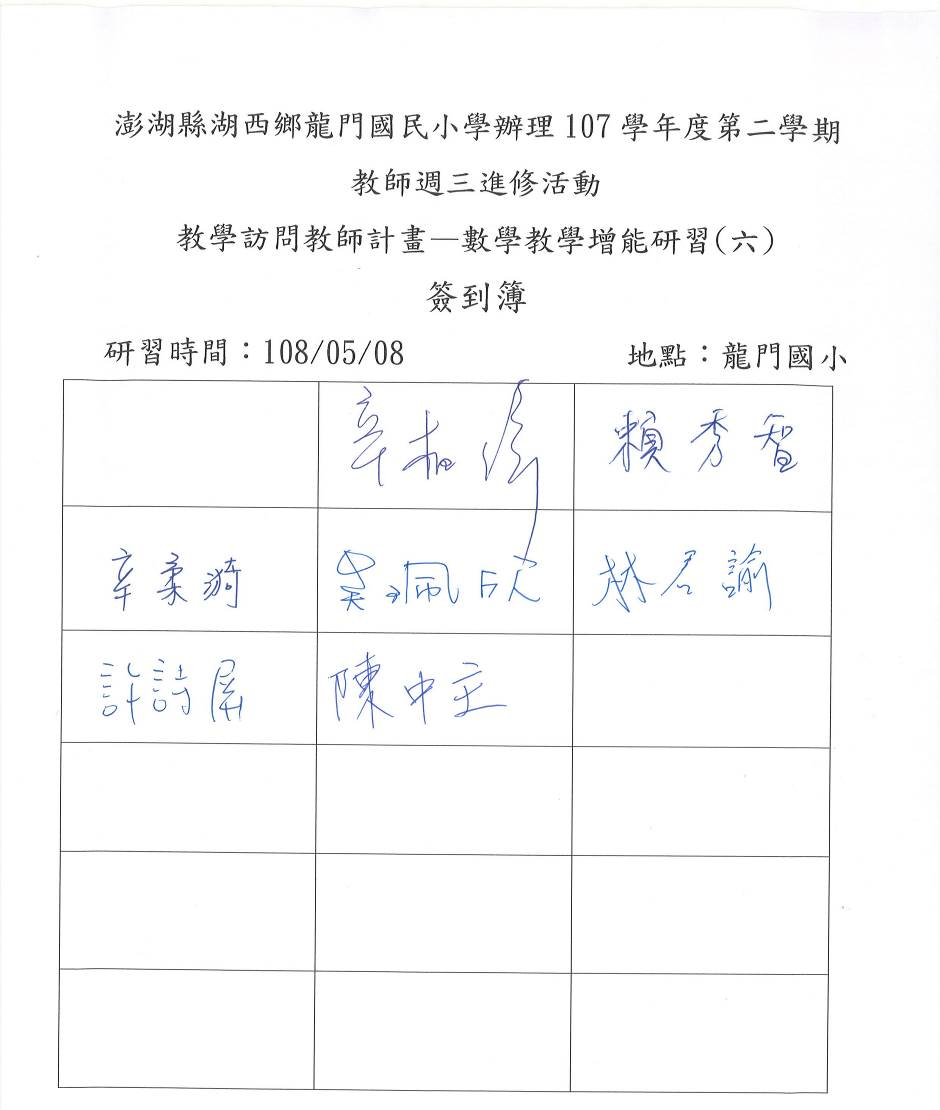 澎湖縣湖西鄉龍門國民小學辦理 107 學年度第二學期
教師週三進修活動
教學訪問教師計畫—數學教學增能研習(六)
簽到簿
研習時間：108/05/08 地點：龍門國小
辛 賴秀智
辛柔漪 吳珮欣 林君諭
許詩屏 陳中主